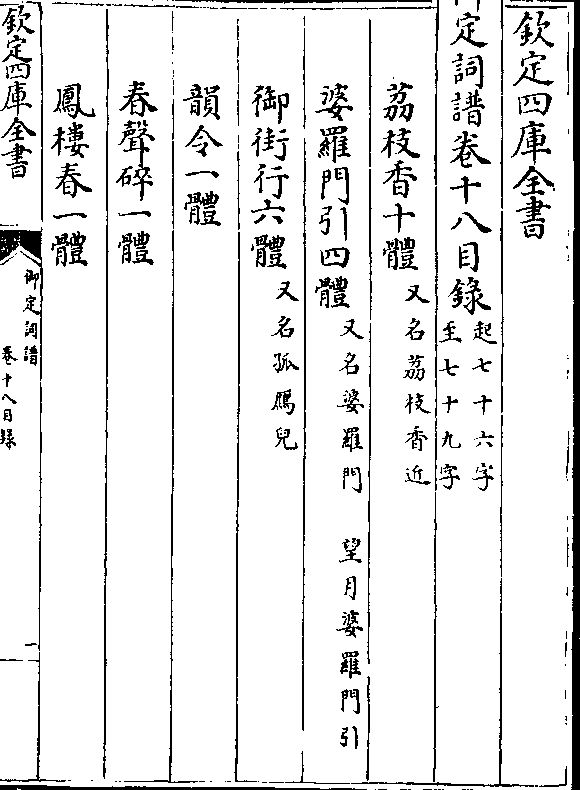 欽定四庫全書
御定詞譜卷十八目錄 起七十六字至七十九字
荔枝香十體 又名荔枝香近
婆羅門引四體 又名婆羅門 望月婆羅門引
御街行六體 又名孤鴈兒
韻令一體
春聲碎一體
鳳樓春一體
欽定四庫全書
御定詞譜
卷十八目錄
一